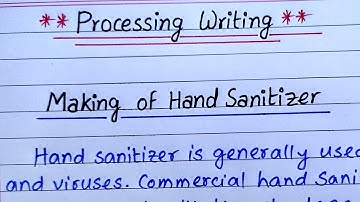 ** Processing Writing **
Making of Hand Sanitizer
Hand sanitizer is generally used
and viruses. Commercial hand Sani